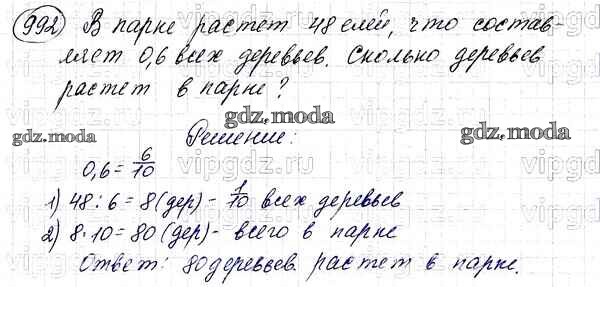 992 В парке растет 48 елей, что состав-
ляет 0,6 всех деревьев. Сколько деревьев
растет в парке?
gdz.moda gdz.moda gdz.moda
Решение:
0,6 = 6/10
1) 48 : 6 = 8 (дер) - 1/10 всех деревьев
2) 8 · 10 = 80 (дер) - всего в парке
Ответ: 80 деревьев растет в парке.